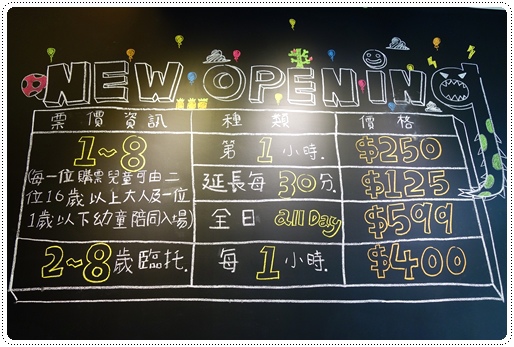 NEW OPENING
票價資訊 種類 價格
1~8
(每一位購票兒童可由二
位16歲以上大人及一位
1歲以下幼童陪同入場)
第1小時. $250
延長每30分. $125
全日 all Day $599
2~8歲臨托. 每1小時. $400